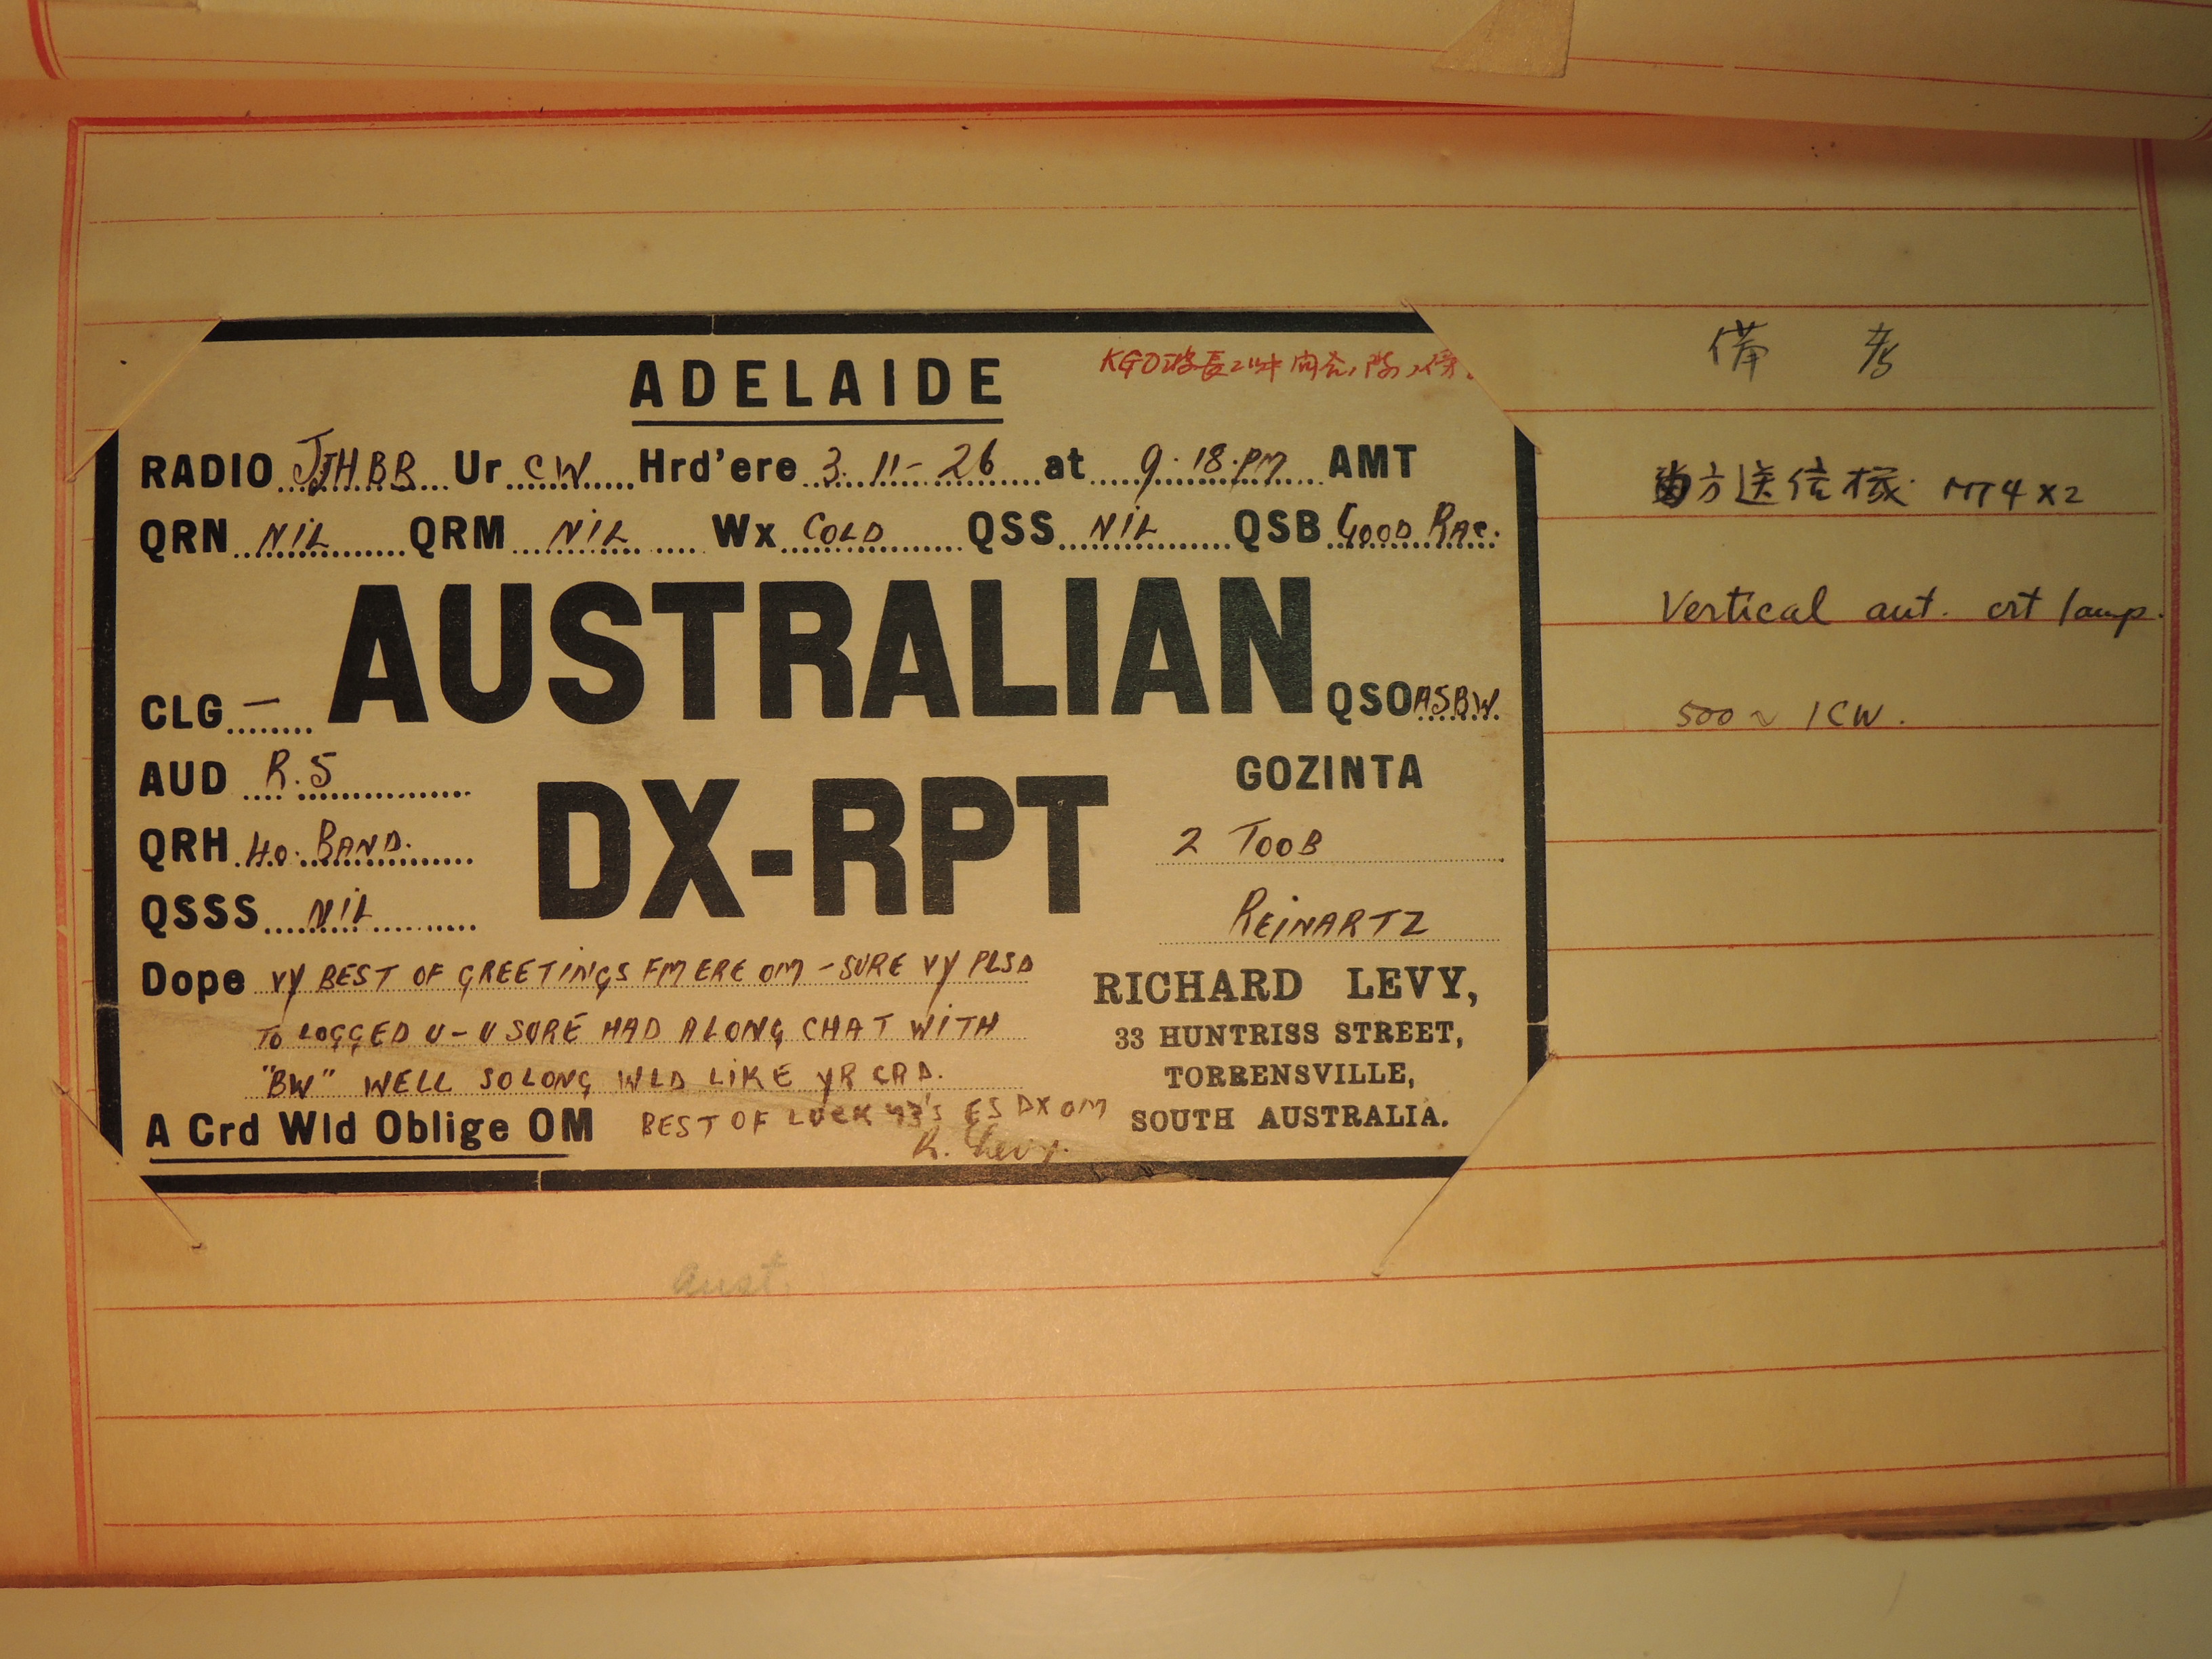 ADELAIDE
KGO波長
備考
RADIO JJHBB Ur CW Hrd'ere 3.11-26 at 9.18.PM AMT
当方送信機 MT4X2
QRN NIL QRM NIL Wx COLD QSS NIL QSB GOOD RAC.
AUSTRALIAN
Vertical ant. crt 1amp.
CLG — QSO A5BW.
500~ ICW.
AUD R.5
DX-RPT
GOZINTA
QRH 40. BAND.
2 TOOB
QSSS NIL
REINARTZ
Dope VY BEST OF GREETINGS FM ERE OM - SURE VY PLSD
RICHARD LEVY,
TO LOGGED U - U SURE HAD A LONG CHAT WITH
33 HUNTRISS STREET,
"BW" WELL SO LONG WLD LIKE YR CRD.
TORRENSVILLE,
A Crd Wld Oblige OM BEST OF LUCK 73's ES DX OM
SOUTH AUSTRALIA.
R. Levy.
Aust.